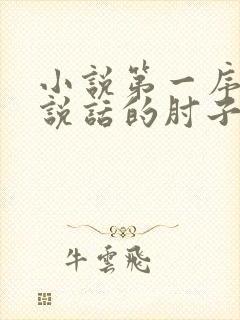 小說第一序
說話的肘子
牛雲飛